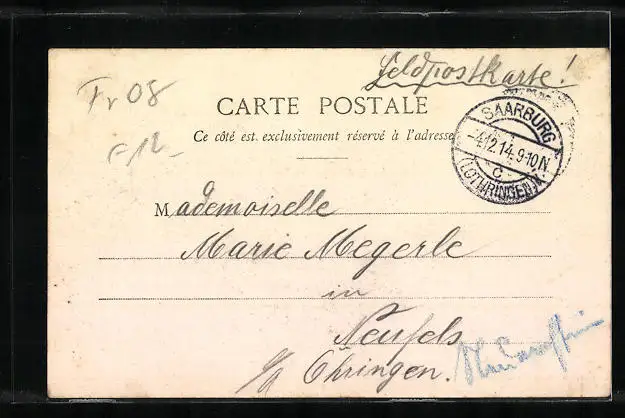 Feldpostkarte!
Fr 08
CARTE POSTALE
Ce côté est exclusivement réservé à l'adresse
SAARBURG
-4.12.14.9-10N
C
(LOTHRINGEN)
Mademoiselle
Marie Megerle
in
Neufels
Öhringen.